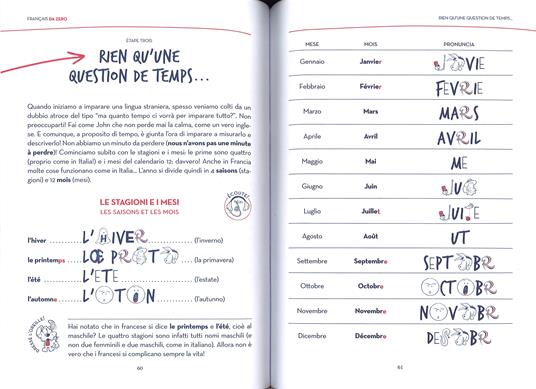 FRANÇAIS DA ZERO
ÉTAPE TROIS
RIEN QU'UNE
QUESTION DE TEMPS...
Quando iniziamo a imparare una lingua straniera, spesso veniamo colti da un
dubbio atroce del tipo "ma quanto tempo ci vorrà per imparare tutto?". Non
preoccuparti! Fai come John che non perde mai la calma, come un vero ingle-
se. E comunque, a proposito di tempo, è giunta l'ora di imparare a misurarlo e
descriverlo! Non abbiamo un minuto da perdere (nous n'avons pas une minute
à perdre)! Cominciamo subito con le stagioni e i mesi: le prime sono quattro
(proprio come in Italia!) e i mesi del calendario 12: davvero! Anche in Francia
molte cose funzionano come in Italia... L'anno si divide quindi in 4 saisons (sta-
gioni) e 12 mois (mesi).
ÉCOUTE!
LE STAGIONI E I MESI
LES SAISONS ET LES MOIS
l'hiver L'HIVER (l'inverno)
le printemps (la primavera)
l'été L'ETE (l'estate)
l'automne (l'autunno)
DRESSE L'OREILLE!
Hai notato che in francese si dice le printemps e l'été, cioè al
maschile? Le quattro stagioni sono infatti tutti nomi maschili (e
non due femminili e due maschili, come in italiano). Allora non è
vero che i francesi si complicano sempre la vita!
60
RIEN QU'UNE QUESTION DE TEMPS...
MESE MOIS PRONUNCIA
Gennaio Janvier
Febbraio Février FEVRIE
Marzo Mars MARS
Aprile Avril AVRIL
Maggio Mai ME
Giugno Juin
Luglio Juillet
Agosto Août UT
Settembre Septembre
Ottobre Octobre
Novembre Novembre
Dicembre Décembre
61